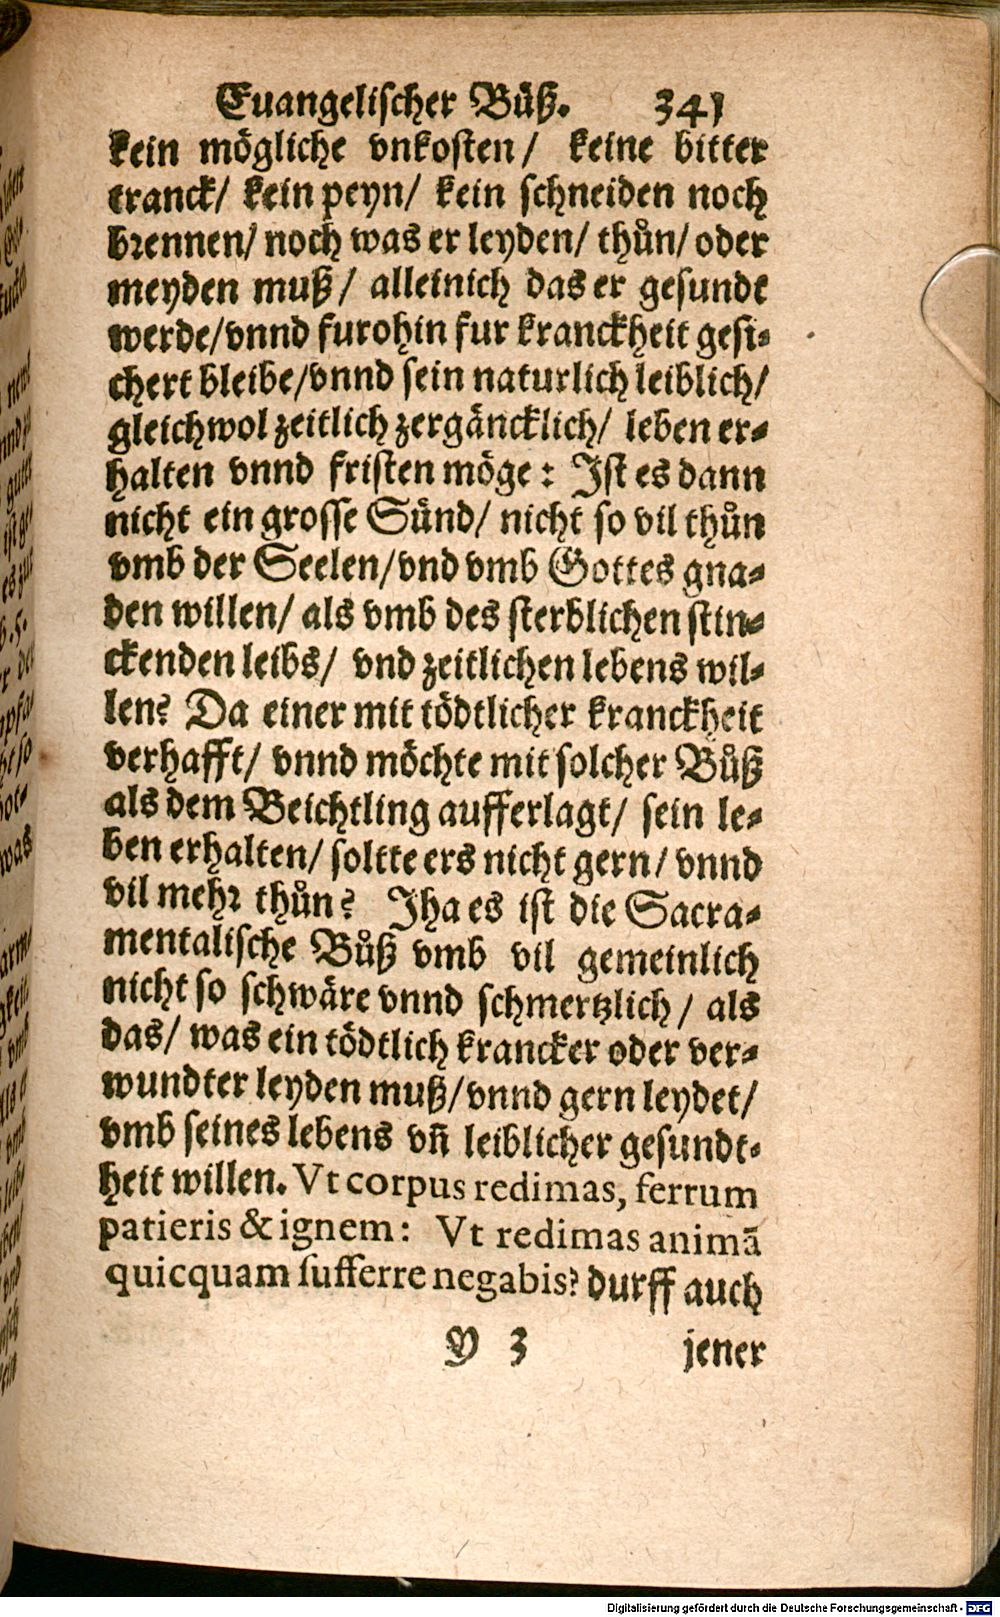 Euangelischer Büß. 341
kein mögliche vnkosten/ keine bitter
tranck/ kein peyn/ kein schneiden noch
brennen/ noch was er leyden/ thůn/ oder
meyden muß/ alleinich das er gesunde
werde/vnnd furohin fur kranckheit gesi⸗
chert bleibe/vnnd sein naturlich leiblich/
gleichwol zeitlich zergäncklich/ leben er⸗
halten vnnd fristen möge: Ist es dann
nicht ein grosse Sünd/ nicht so vil thůn
vmb der Seelen/vnd vmb Gottes gna⸗
den willen/ als vmb des sterblichen stin⸗
ckenden leibs/ vnd zeitlichen lebens wil⸗
len? Da einer mit tödtlicher kranckheit
verhafft/ vnnd möchte mit solcher Bůß
als dem Beichtling aufferlagt/ sein le⸗
ben erhalten/ soltte ers nicht gern/ vnnd
vil mehr thůn? Iha es ist die Sacra⸗
mentalische Bůß vmb vil gemeinlich
nicht so schwäre vnnd schmertzlich/ als
das/ was ein tödtlich krancker oder ver⸗
wundter leyden muß/vnnd gern leydet/
vmb seines lebens vñ leiblicher gesundt⸗
heit willen. Vt corpus redimas, ferrum
patieris & ignem: Vt redimas animā
quicquam sufferre negabis? durff auch
Y 3 jener
Digitalisierung gefördert durch die Deutsche Forschungsgemeinschaft - DFG